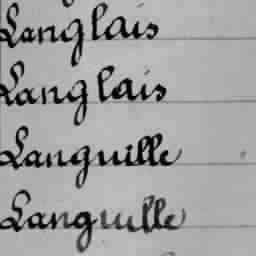 Langlais
Langlais
Languille
Languille